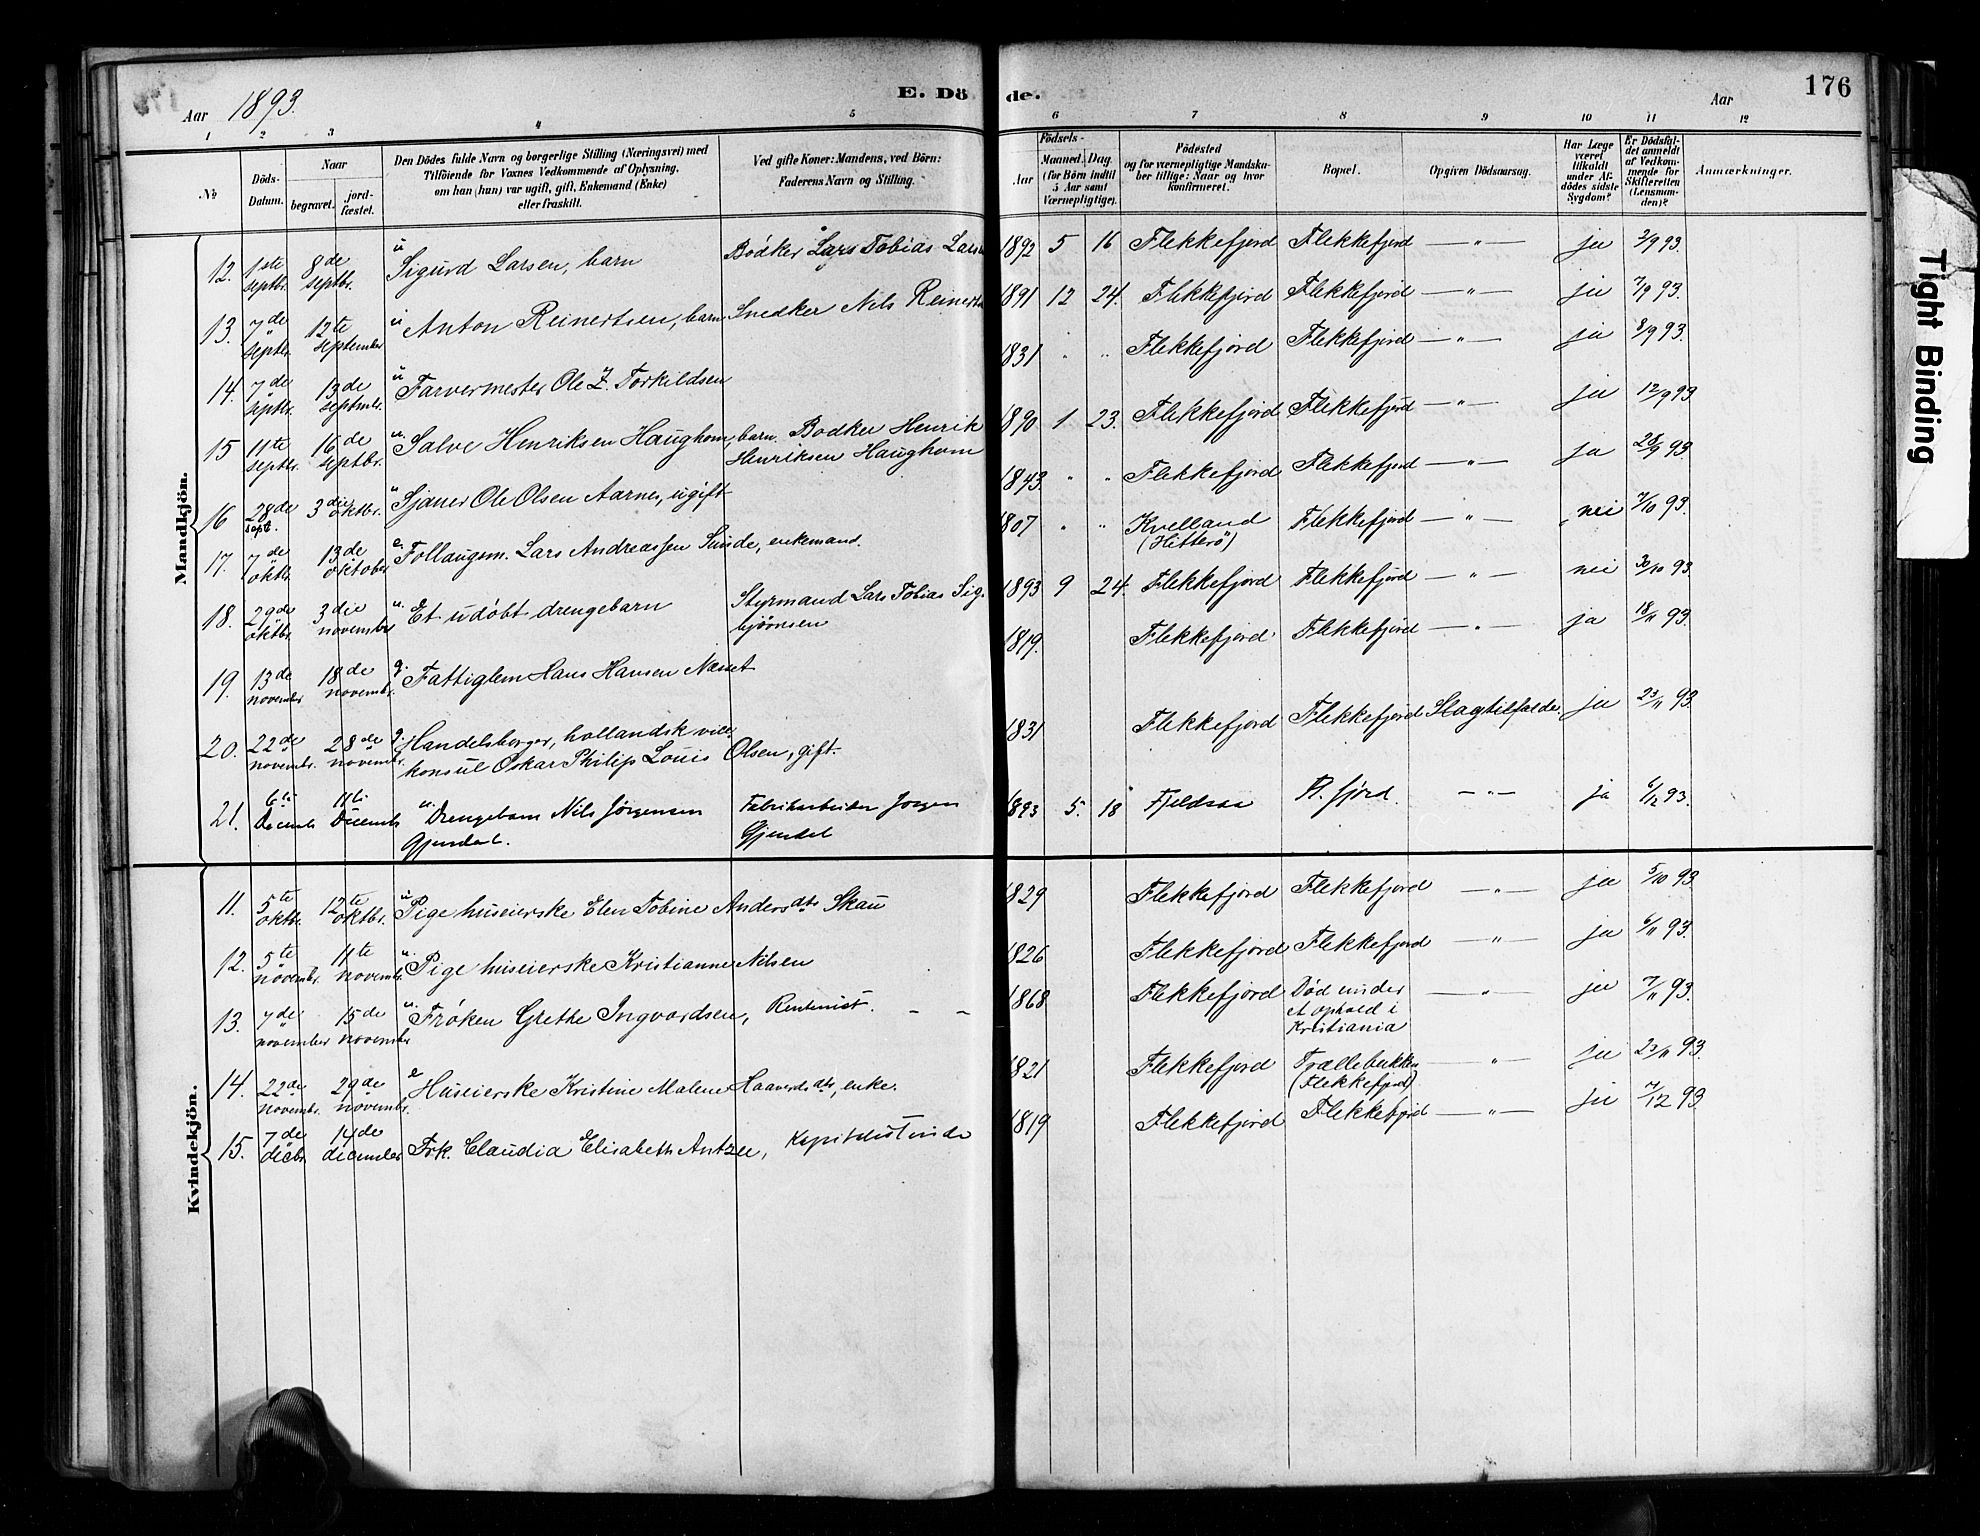 176
Aar 1893.
E. Döde.
Aar
1 2 3 4 5 6 7 8 9 10 11 12
№
Döds-Datum.
Naar
begravet.
jordfæstet.
Den Dödes fulde Navn og borgerlige Stilling (Næringsvei) med
Tilföiende for Voxnes Vedkommende af Oplysning,
om han (hun) var ugift, gift, Enkemand (Enke)
eller fraskilt.
Ved gifte Koner: Mandens, ved Börn:
Faderens Navn og Stilling.
Födsels-
Aar
Maaned. Dag.
(for Börn indtil
5 Aar samt
Værnepligtige).
Födested
og for værnepligtige Mandskaber tillige: Naar og hvor
konfirmeret.
Bopæl.
Opgiven Dödsaarsag.
Har Læge
været
tilkaldt
under Afdödes sidste
Sygdom?
Er Dödsfaldet anmeldt
af Vedkommende for
Skifteretten
(Lensmanden)?
Anmærkninger.
Mandkjön.
12. 1ste septbr. 8de septbr. u Sigurd Larsen, barn Bødker Lars Tobias Larsen 1892 5 16 Flekkefjord Flekkefjord — " — ja 2/9 93.
13. 7de septbr. 12te september u Anton Reinertsen, barn Snedker Nils Reinertsen 1891 12 24. Flekkefjord Flekkefjord — " — ja 7/9 93.
14. 7de septbr. 13de septembr. u Farvermester Ole Z. Torkildsen 1831 " " Flekkefjord Flekkefjord — " — ja 8/9 93.
15 11te septbr. 16de septbr. u. Salve Henriksen Haughom, barn. Bødker Henrik Henriksen Haughom 1890 1 23. Flekkefjord Flekkefjord — " — ja 12/9 93
16 28de sept. 3die oktbr. u Sjauer Ole Olsen Aarnes, ugift 1843. " " Flekkefjord Flekkefjord — " — ja 28/9 93.
17. 7de oktbr. 13de oktober e. Follaugsm. Lars Andreassen Sunde, enkemand. 1807 " " Kvelland (Hitterö) Flekkefjord — " — nei 7/10 93.
18. 29de oktbr. 3die novembr. u. Et udøbt drengebarn Styrmand Lars Tobias Sigbjørnsen 1893 9 24. Flekkefjord Flekkefjord — " — nei 30/10 93.
19. 13de november 18de novembr. g. Fattiglem Hans Hansen Næsset 1819. Flekkefjord Flekkefjord — " — ja 18/11 93.
20. 22de novembr. 28de novembr. g. Handelsborger, hollandsk vicekonsul Oskar Philip Louis Olsen, gift. 1831 Flekkefjord Flekkefjord Slagtilfælde. ja 23/11 93.
21. 6te Decembr 11te Decembr u. Drengebarn Nils Jørgensen Gjendal. Fabrikarbeider Jørgen Gjendal 1893 5. 18 Fjeldsaa Fl. fjord. — " — ja 6/12 93.
Kvindekjön.
11. 5te oktbr. 12te oktbr. u Pige huseierske Elen Tobine Andersdtr Skau 1829 Flekkefjord Flekkefjord — " — ja 5/10 93
12. 5te novembr. 11te novembr. u. Pige huseierske Kristianne Nilsen 1826 Flekkefjord Flekkefjord — " — ja 6/11 93.
13. 7de november 15de novembr u. Frøken Grethe Ingvardsen, Rentenist. — — 1868 Flekkefjord Død under et ophold i Kristiania — " — ja 7/11 93.
14. 22de novembr. 29de novembr. e Huseierske Kristine Malene Haavardsdtr, enke. 1821 Flekkefjord Trællebakken (Flekkefjord) — " — ja 23/11 93.
15. 7de decbr. 14de december Frk. Claudia Elisabeth Antzee, Kapitalistinde 1819 Flekkefjord Flekkefjord — " — ja 7/12 93
Tight Binding